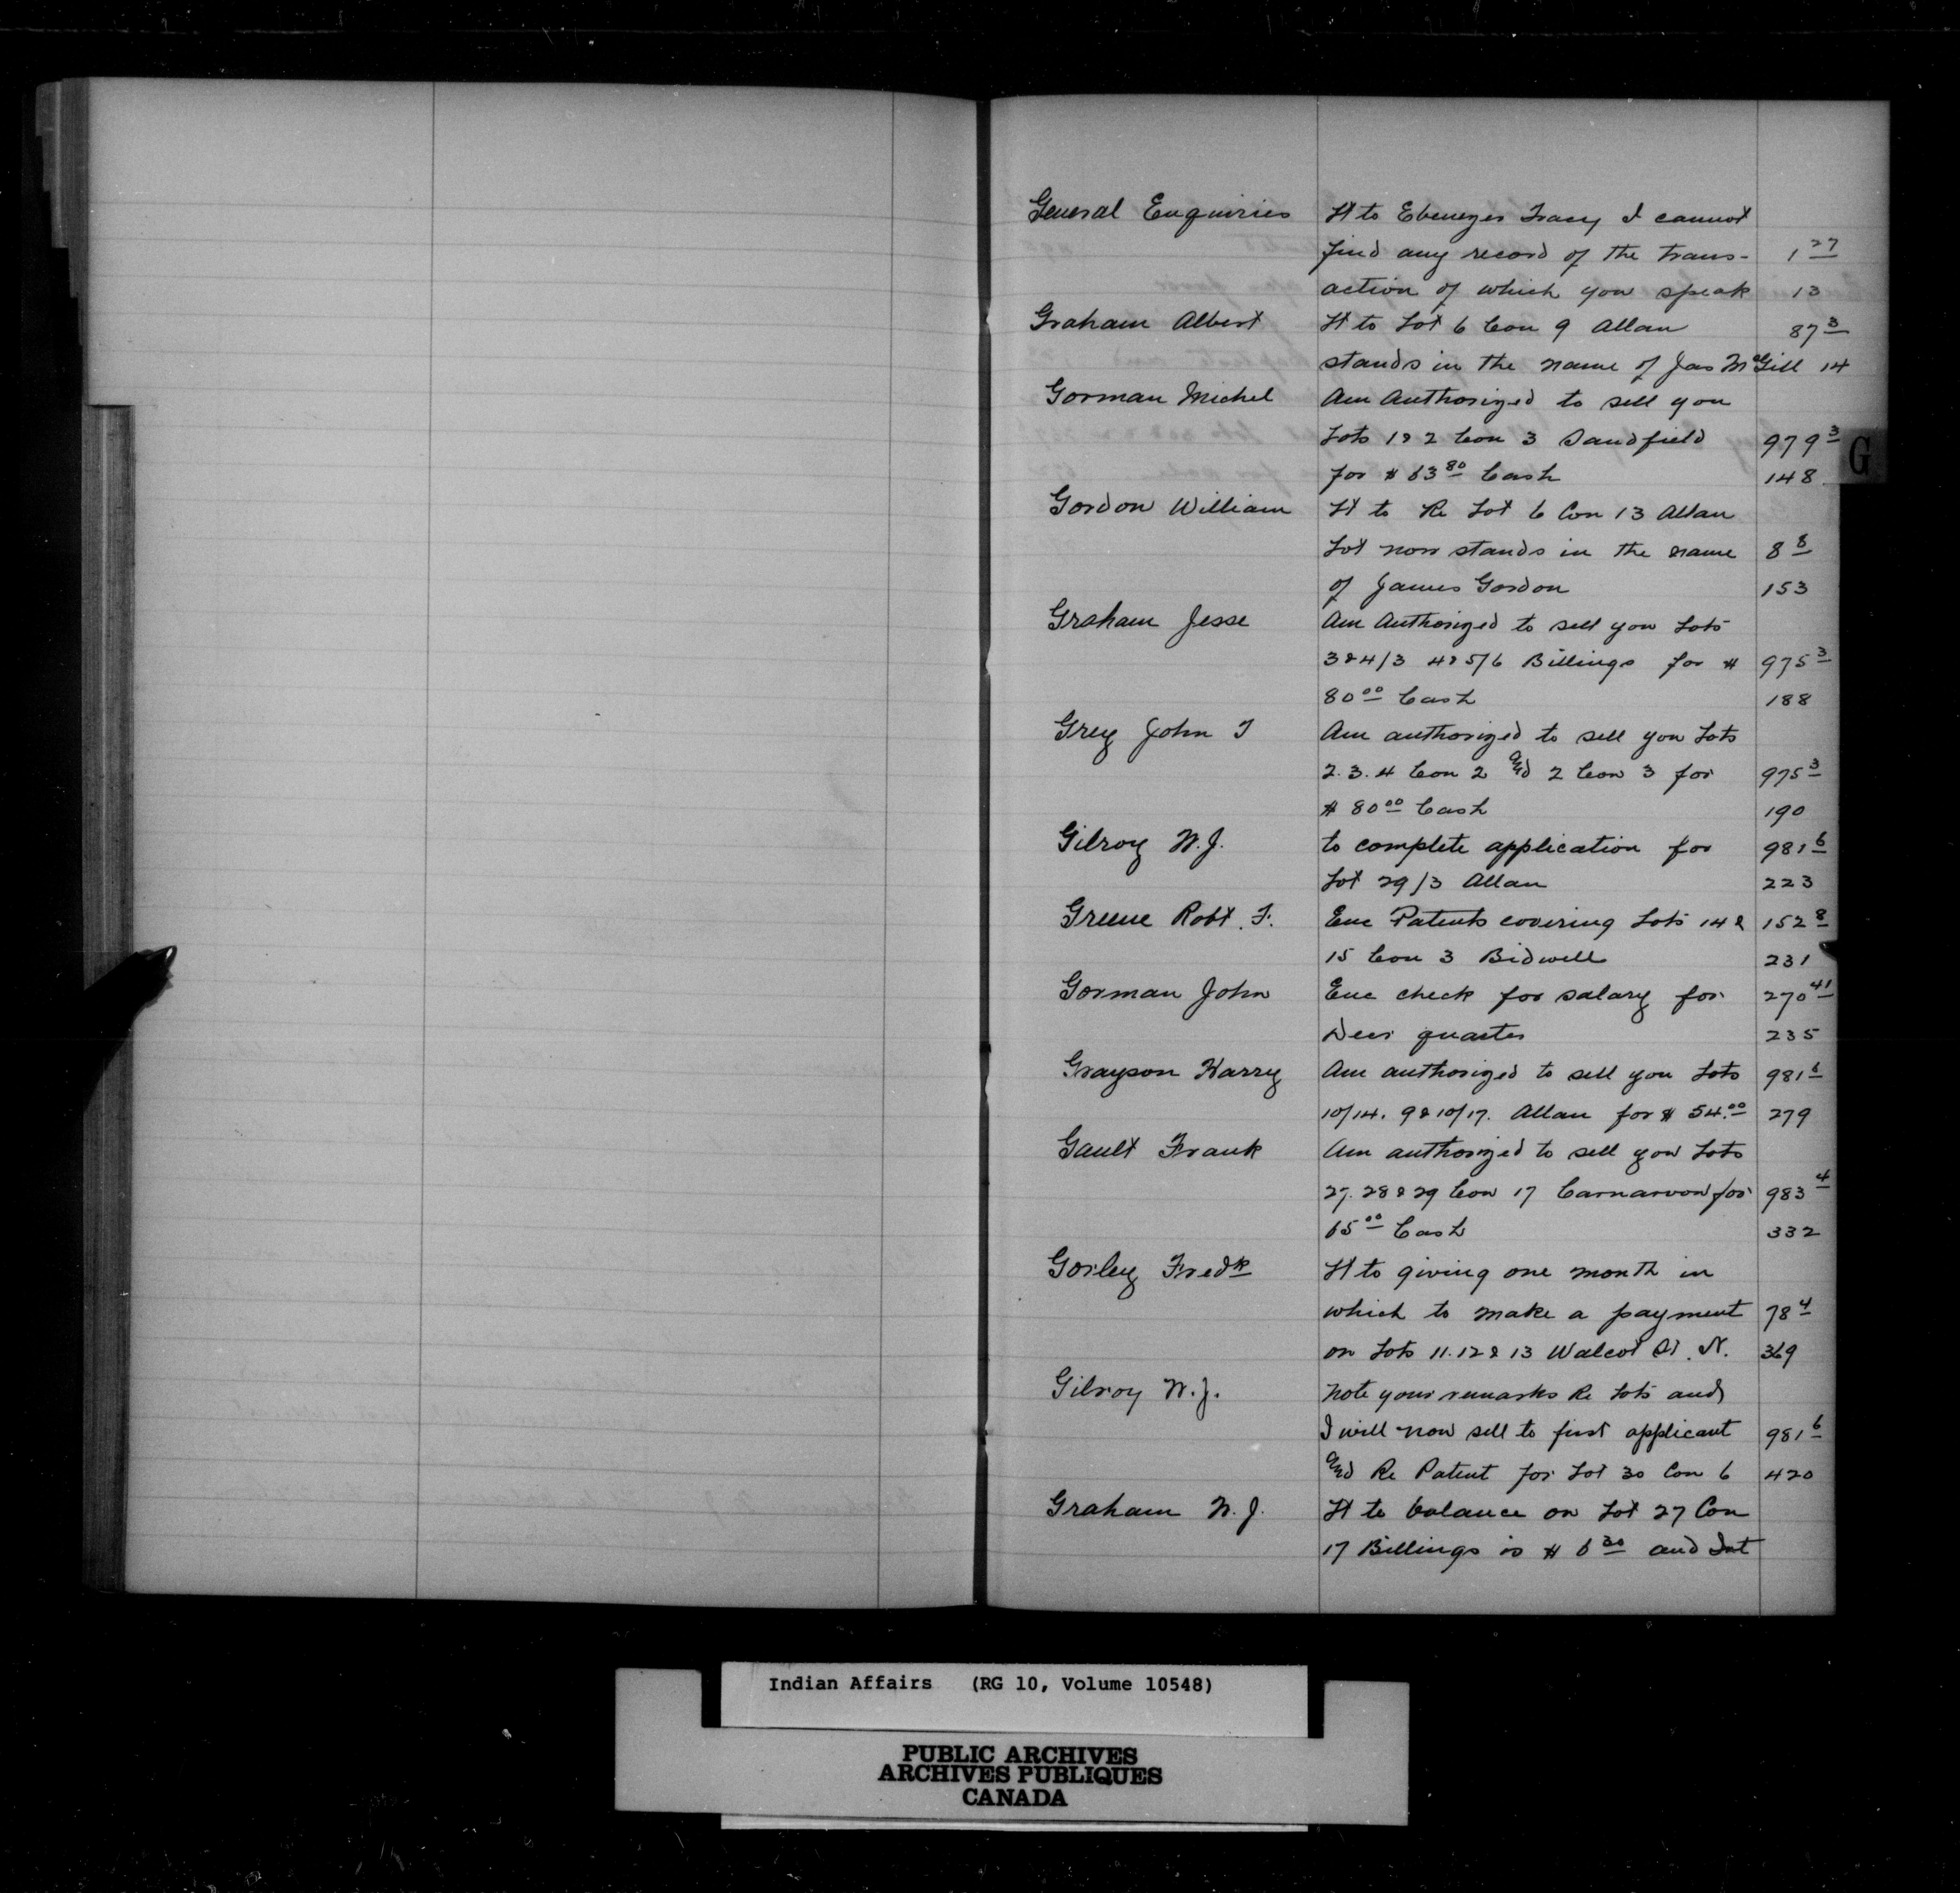 General Enquiries Lt to Ebenezer Tracy I cannot
find any record of the trans- 1 27
action of which you speak 13
Graham Albert Lt to Lot 6 Con 9 Allan 87 3
stands in the name of Jas McGill 14
Gorman Michel Am Authorized to sell you
Lots 1 & 2 Con 3 Sandfield 979 3
for $ 63 80 Cash 148
Gordon William Lt to Re Lot 6 Con 13 Allan
Lot now stands in the name 8 8
of James Gordon 153
Graham Jesse Am Authorized to sell you Lots
3 & 4/3 4 & 5/6 Billings for $ 975 3
80 00 Cash 188
Grey John T Am authorized to sell you Lots
2. 3. 4 Con 2 and 2 Con 3 for 975 3
$ 80 00 Cash 190
Gilroy W. J. to complete application for 981 6
Lot 29/3 Allan 223
Greene Robt. F. Enc Patents covering Lots 14 & 152 8
15 Con 3 Bidwell 231
Gorman John Enc check for salary for 270 41
Decr quarter 235
Grayson Harry Am authorized to sell you Lots 981 6
10/14. 9 & 10/17. Allan for $ 54.00 279
Gault Frank Am authorized to sell you Lots
27. 28 & 29 Con 17 Carnarvon for 983 4
65 00 Cash 332
Gorley Fredk Lt to giving one month in
which to make a payment 78 4
on Lots 11. 12 & 13 Walcot St. N. 369
Gilroy W. J. Note your remarks Re Lots and
I will now sell to first applicant 981 6
and Re Patent for Lot 30 Con 6 420
Graham W. J. Lt to balance on Lot 27 Con
17 Billings is $ 6 30 and Int
G
Indian Affairs (RG 10, Volume 10548)
PUBLIC ARCHIVES
ARCHIVES PUBLIQUES
CANADA